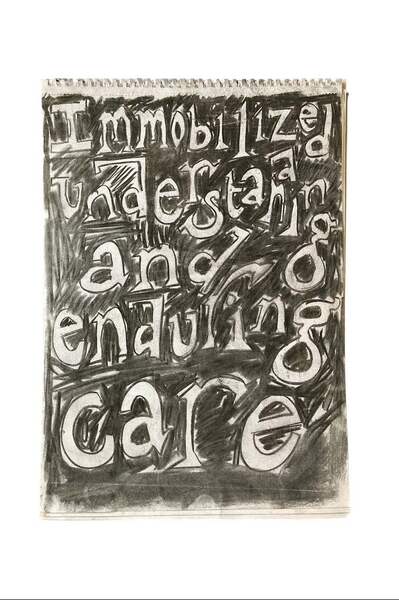 Immobilized
understanding
and
enduring
care